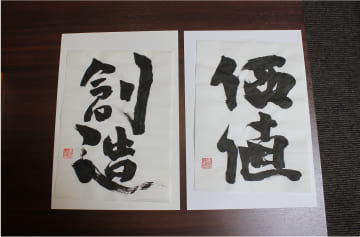 価値
創造